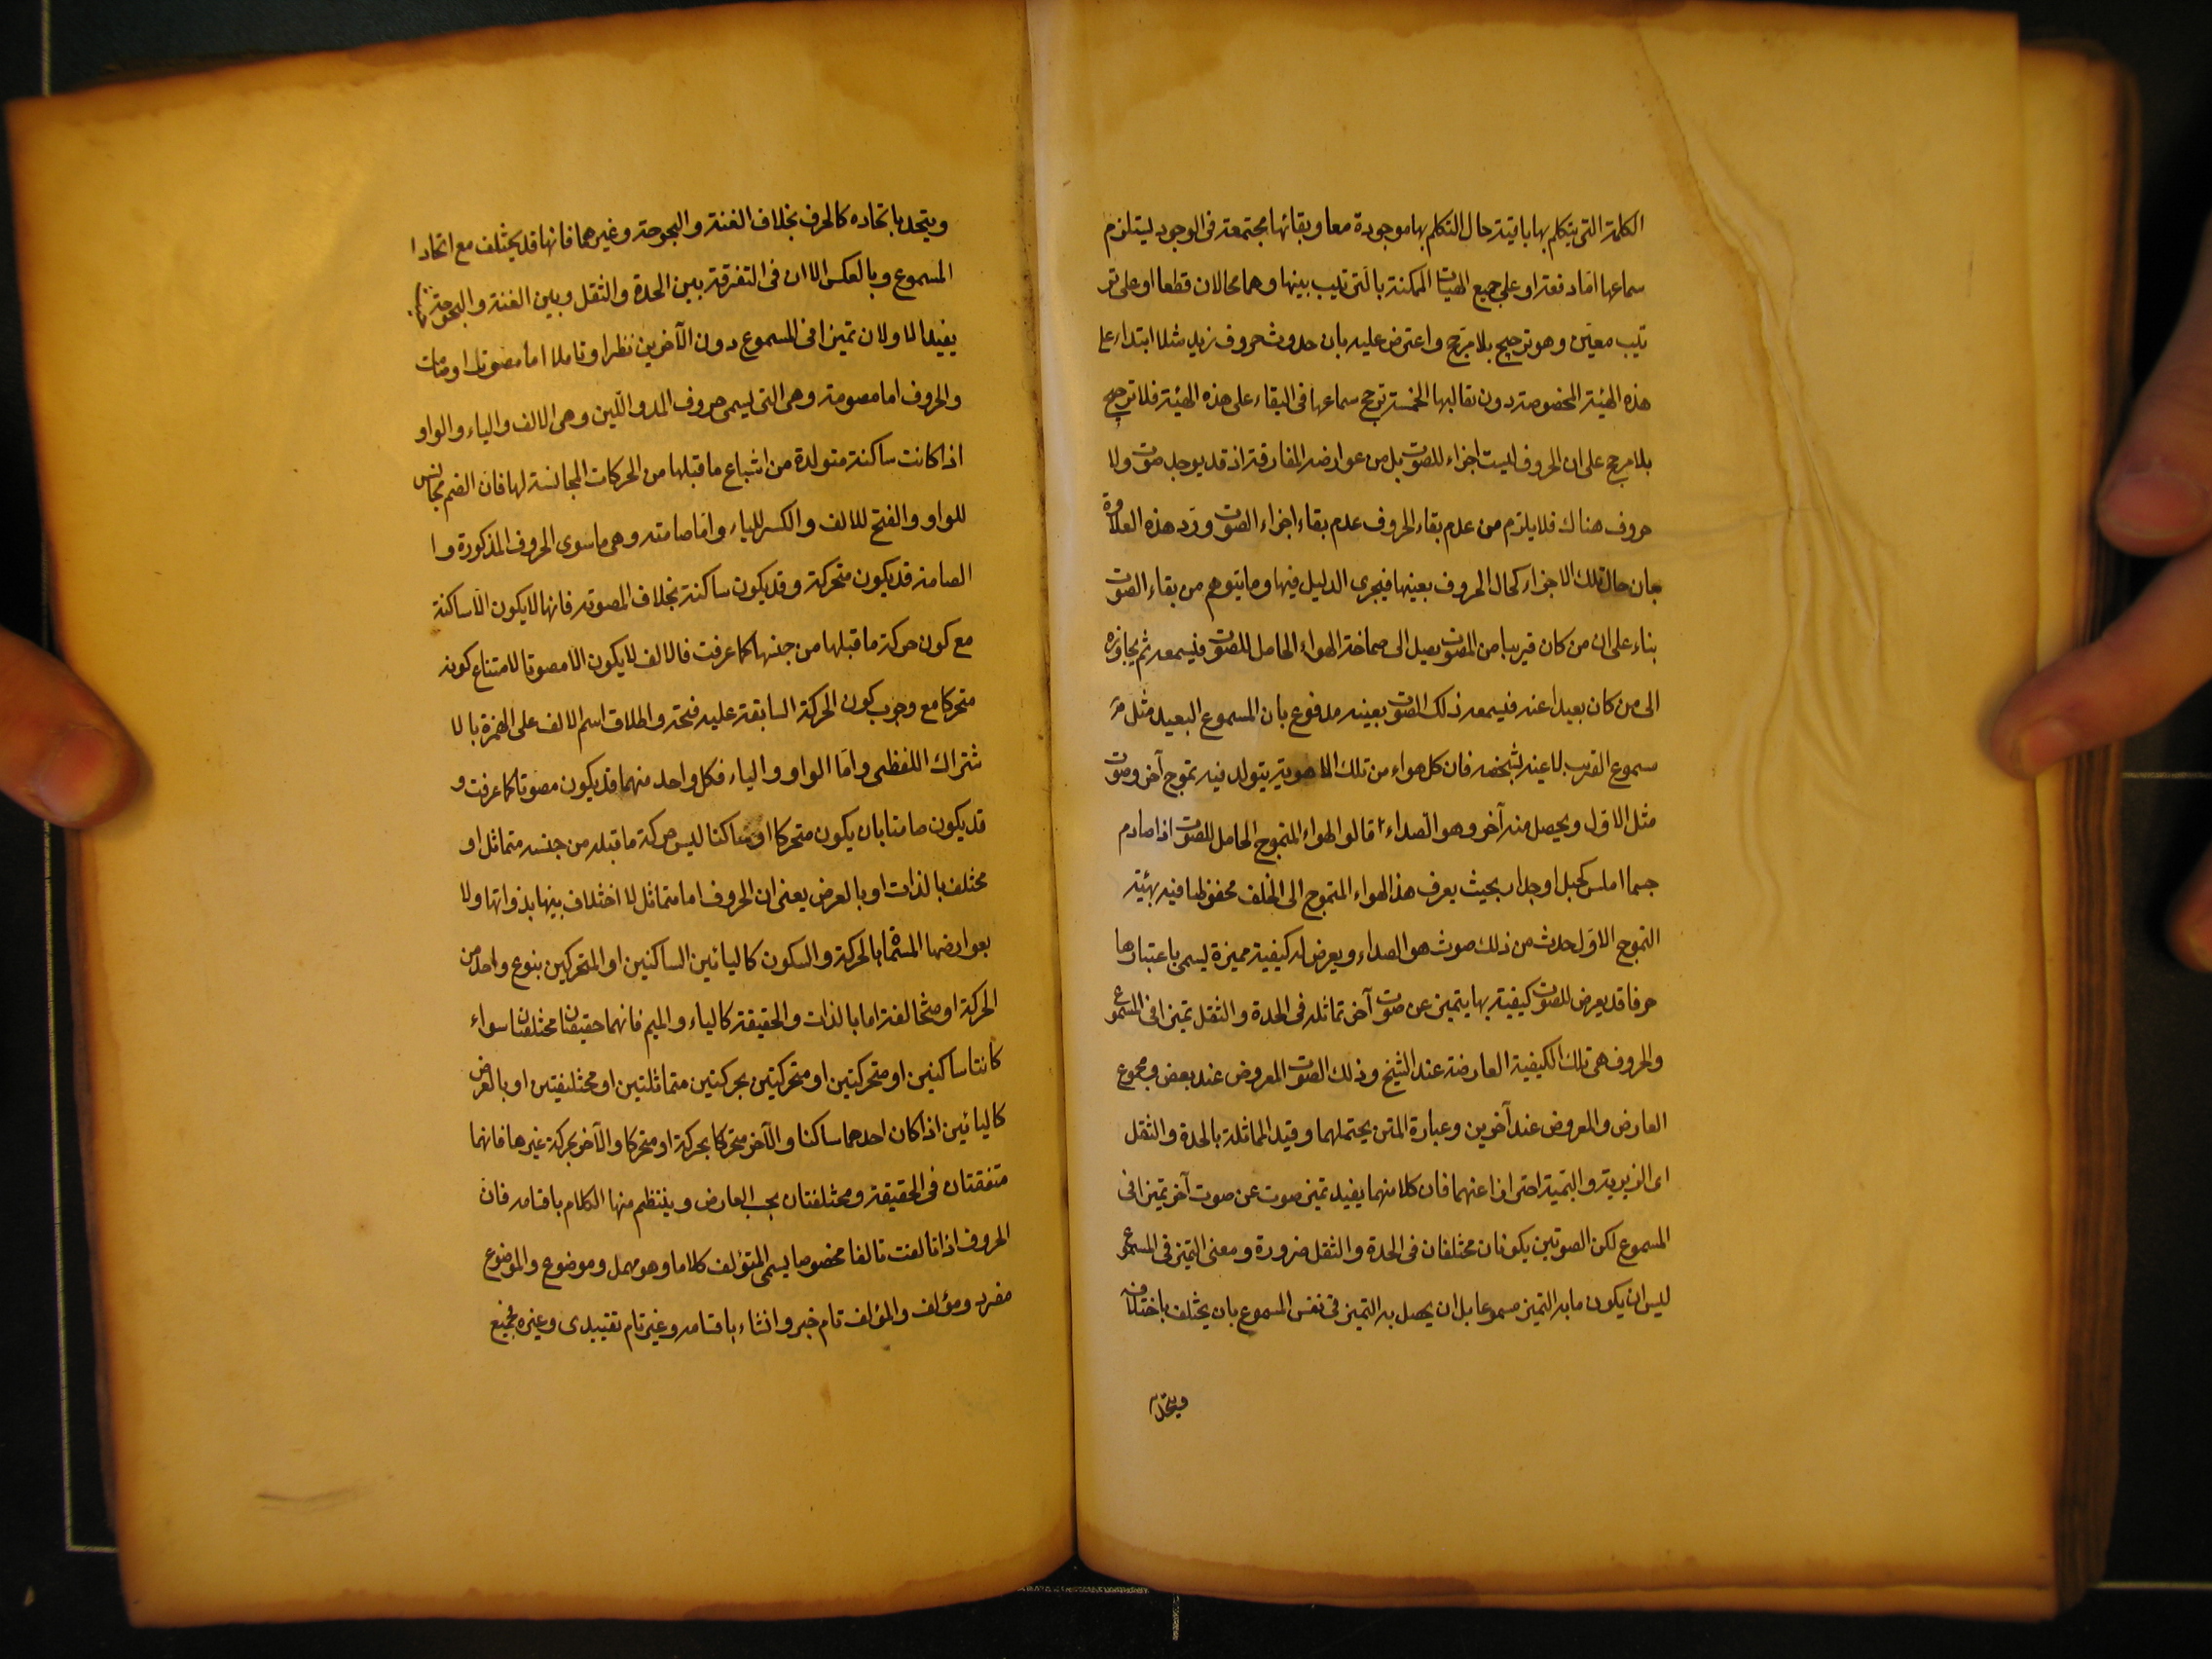 الكلمة التى يتكلم بها باقية حال التكلم بها موجودة معا وبقائها مجتمعة فى الوجود يستلزم
سماعها اما دفعة او على جميع الهيئات الممكنة بالترتيب بينها وهما محالان قطعا او على تر
تيب معين وهو ترجيح بلا مرجح واعترض عليه بان حدوث حروف زيد مثلا ابتداء على
هذه الهيئة المخصوصة دون تقاليبها الخمسة ترجح سماعها فى البقاء على هذه الهيئة فلا ترجيح
بلا مرجح على ان الحروف ليست اجزاء للصوت بل من عوارضه المفارقة اذ قد يوجد صوت ولا
حروف هناك فلا يلزم من عدم بقاء الحروف عدم بقاء اجزاء الصوت ورد هذه العلاوة
بان حال تلك الاجزاء كحال الحروف بعينها فيجرى الدليل فيها وما يتوهم من بقاء الصوت
بناء على ان من كان قريبا من المصوت يصل الى صماخة الهواء الحامل للصوت فيسمعه ثم يجاوزه
الى من كان بعيدا عنه فيسمعه ذلك الصوت بعينه مدفوع بان المسموع البعيد مثل م
سموع القريب لا عينه بشخصه فان كل هواء من تلك الاهوية يتولد فيه تموج آخر وصوت
مثل الاول ويحصل منه آخر وهو الصداء قالوا الهواء المتموج الحامل للصوت اذا صادم
جسما املس كجبل او جدار بحيث يعرف هذا الهواء المتموج الى الخلف محفوظا فيه بهيئة
التموج الاول حدث من ذلك صوت هو الصداء ويعرض له كيفية مميزة يسمى باعتبارها
حرفا قد يعرض للصوت كيفية بها يتميز عن صوت آخر تماثله فى الحدة والثقل تميزا فى المسموع
والحروف هى تلك الكيفية العارضة عند الشيخ وذلك الصوت المعروض عند بعض ومجموع
العارض والمعروض عند آخرين وعبارة المتن يحتملهما وقيد المماثلة بالحدة والثقل
اى الزيرية والبمية احترازا عنهما فان كلا منهما يفيد تميز صوت عن صوت آخر تميزا فى
المسموع لكن الصوتين يكونان مختلفان فى الحدة والثقل ضرورة ومعنى التميز فى المسموع
ليس ان يكون ما به التميز مسموعا بل ان يحصل به التميز فى نفس المسموع بان يختلف باختلافه
ويتحد
ويتحد باتحاده كالحرف بخلاف الغنة والبحوحة وغيرهما فانها قد يختلف مع اتحاد ا
المسموع وبالعكس الا ان فى التفرقة بين الحدة والثقل وبين الغنة والبحوحة بان
يفيد الاولان تميزا فى المسموع دون الآخرين نظرا وتاملا اما مصوتات او صامتات
والحروف اما مصوتة وهى التى يسمى حروف المد واللين وهى الالف والياء والواو
اذا كانت ساكنة متولدة من اشباع ما قبلها من الحركات المجانسة لها فان الضم مجانس
للواو والفتح للالف والكسر للياء واما صامتة وهى ما سوى الحروف المذكورة وا
الصامتة قد يكون متحركة وقد يكون ساكنة بخلاف المصوتة فانها لا يكون الا ساكنة
مع كون حركة ما قبلها من جنسها كما عرفت فالالف لا يكون الا مصوتا لامتناع كونه
متحركا مع وجوب كون الحركة السابقة عليه فتحة واطلاق اسم الالف على الهمزة بالا
شتراك اللفظى واما الواو والياء فكل واحد منهما قد يكون مصوتا كما عرفت و
قد يكون صامتا بان يكون متحركا او ساكنا ليس حركة ما قبله من جنسه متماثل او
مختلف بالذات او بالعرض يعنى ان الحروف اما متماثل لا اختلاف بينها بذواتها ولا
بعوارضها المسماة بالحركة والسكون كاليائين الساكنين او المتحركين بنوع واحد من
الحركة او متخالفة اما بالذات والحقيقة كالياء والميم فانهما حقيقتان مختلفتان سواء
كانتا ساكنين او متحركتين او متحركتين بحركتين متماثلتين او مختلفتين او بالعرض
كاليائين اذا كان احدهما ساكنا والآخر متحركا بحركة او متحركا والآخر بحركة غيرها فانهما
متفقتان فى الحقيقة ومختلفتان بحسب العارض وينتظم منها الكلام باقسامه فان
الحروف اذا تالفت تالفا مخصوصا يسمى المتؤلف كلاما وهو مهمل وموضوع والموضوع
مفرد ومؤلف والمؤلف تام خبر وانشاء باقسامه وغير تام تقييدى وغيره فجميع